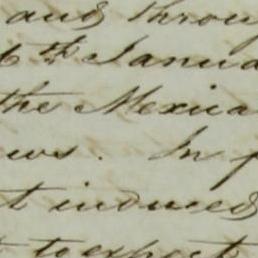 and throug
6th Janua
the Mexica
ws. In p
t induced
t to expect